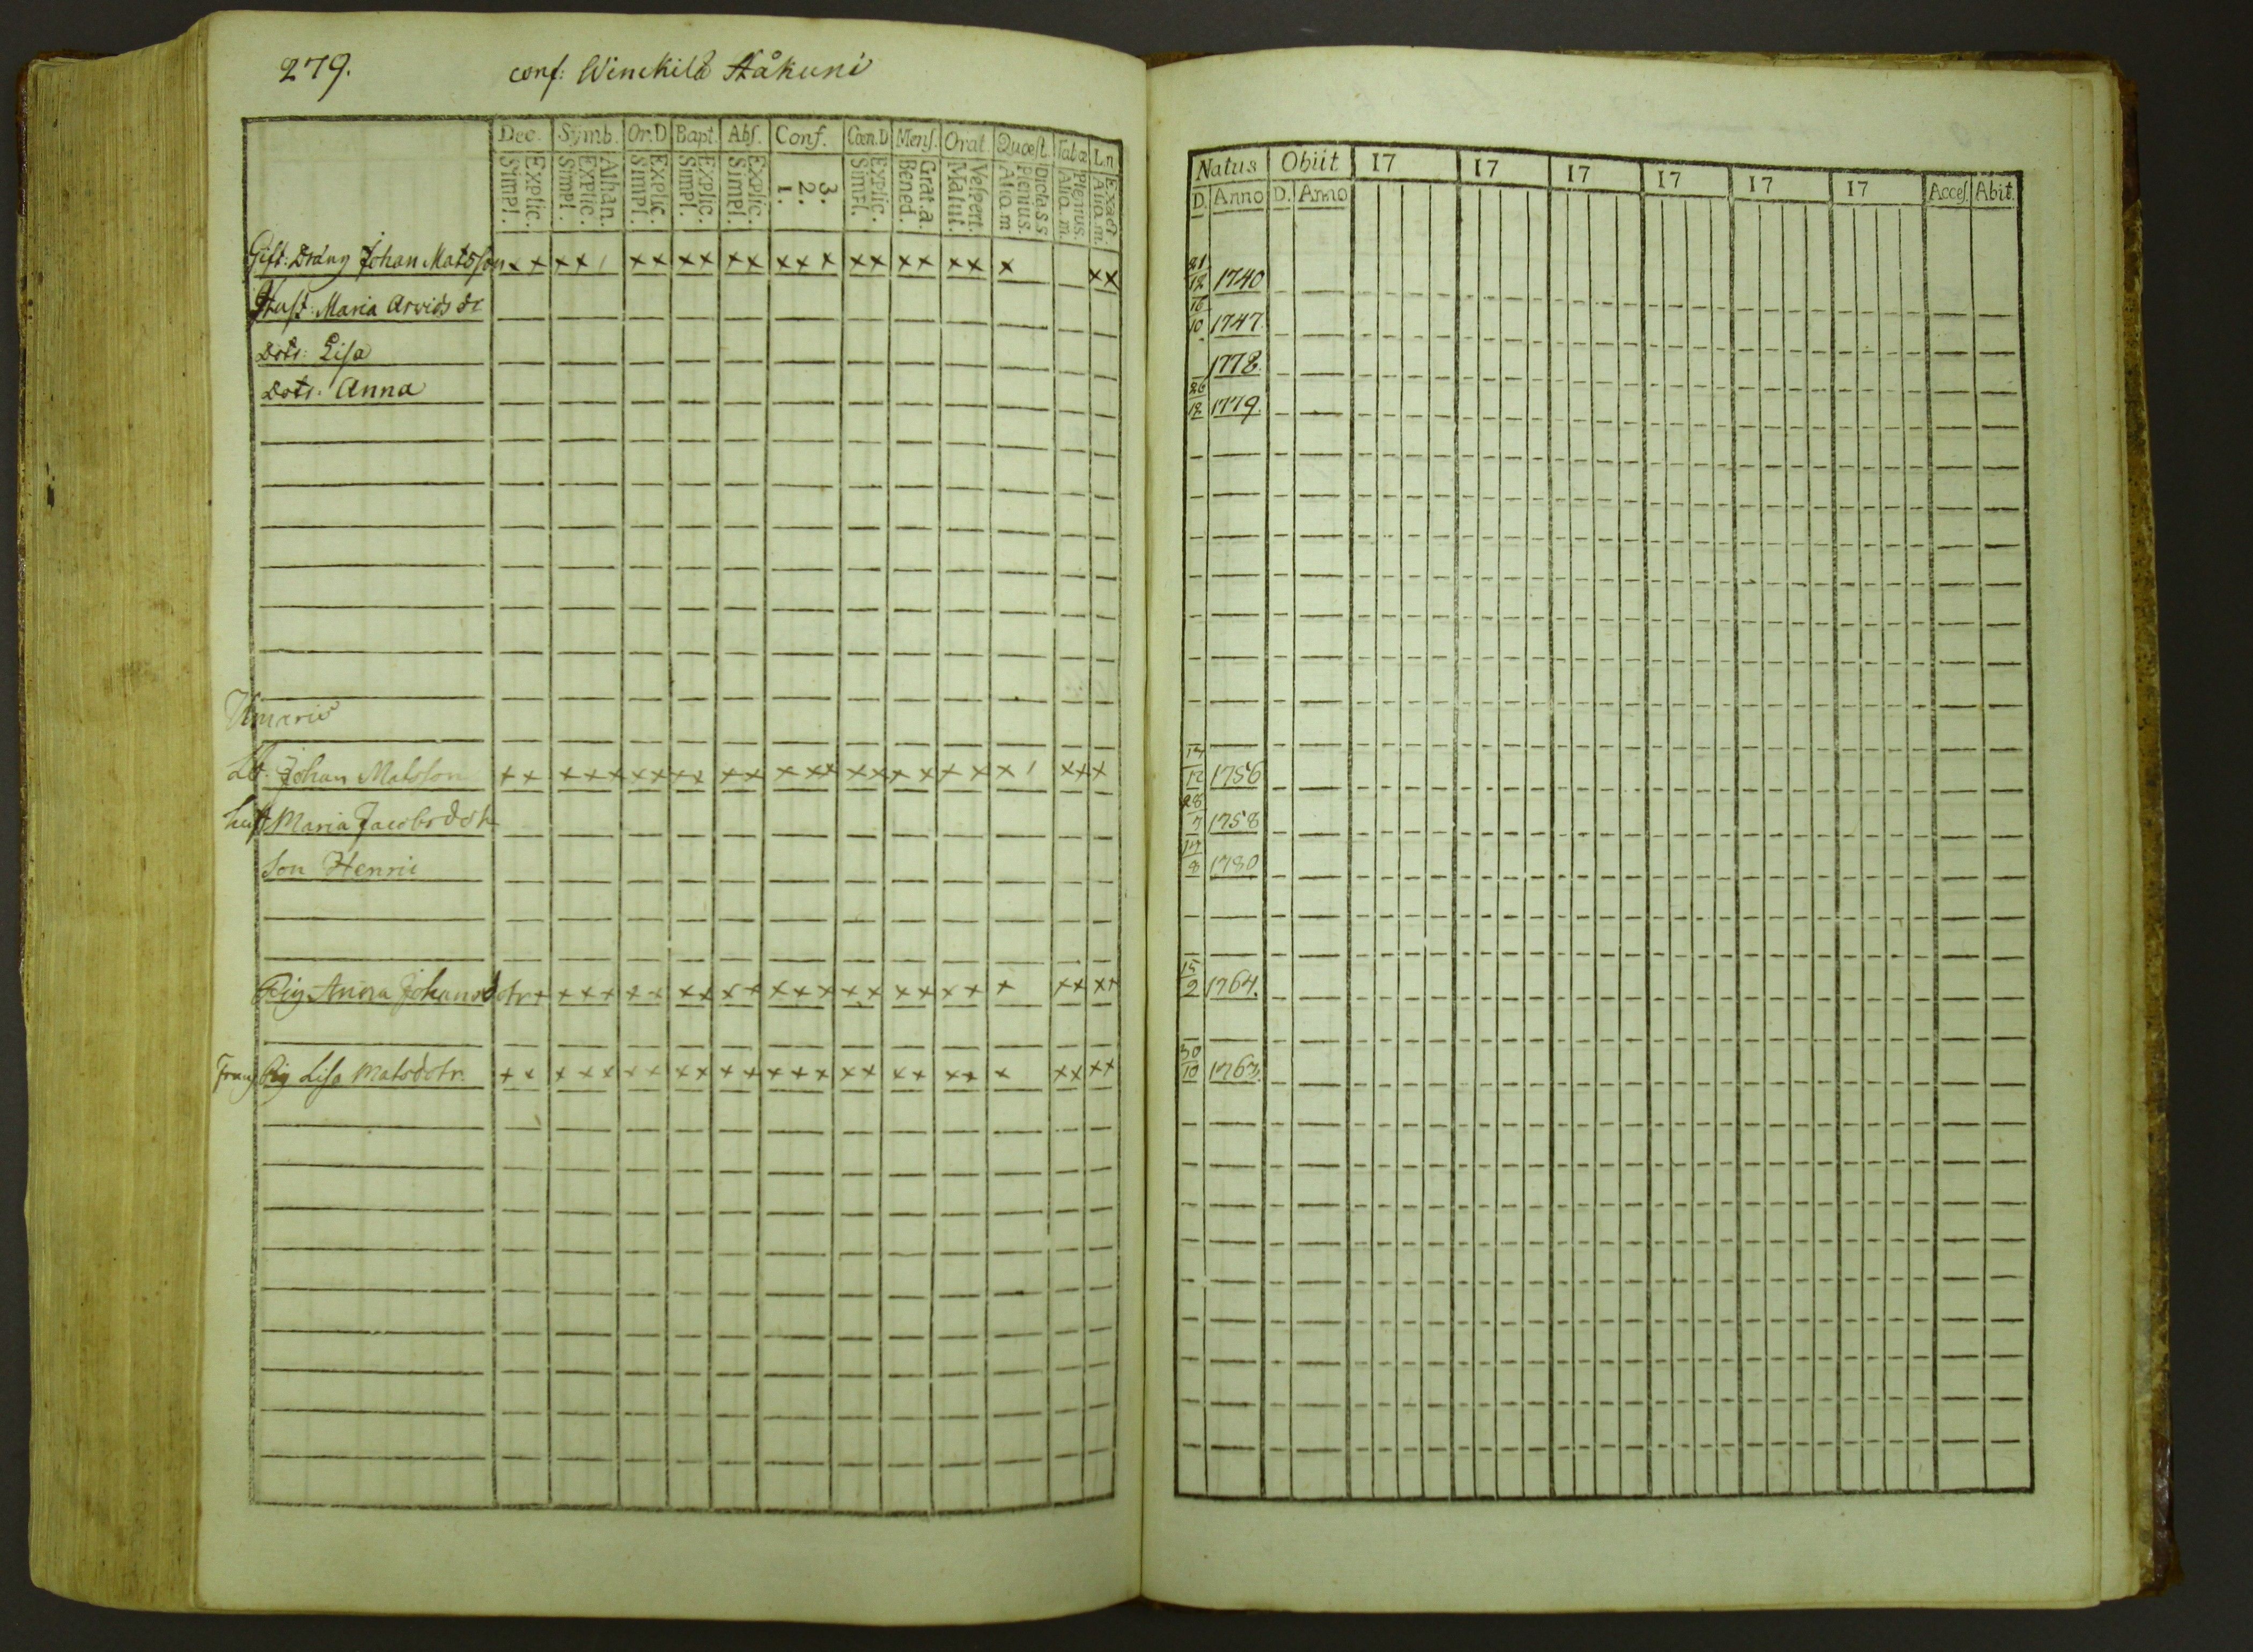 279. conf: Winckilä Ståkuni
Dec. Symb. Or.D Bapt. Abs. Conf. Cœn.D Mens. Orat. Quæst. Tabæ Ln
Simpl. Explic. Simpl. Explic. Athan. Simpl. Explic. Simpl. Explic. Simpl. Explic. 1. 2. 3. Simpl. Explic. Bened. Grat.a. Matut. Vespert. Alio.m Plenius. Dicta s.s Alia.m. Plenius. Alia.m. Exact.
Gift: Dräng Johan Matsson ×× ××/ ×× ×× ×× ××× ×× ×× ×× × ××
Hust: Maria Arvids dr
Dotr: Lisa
Dotr: Anna
Johan Matsson ×× ××× ×× ×× ×× ××× ×× ×× ×× ×/ ×× ×
hust Maria Jacobsdotr
Son Henric
Pig. Anna Johansdotr × ××× ×× ×× ×× ××× ×× ×× ×× × ×× ××
Pig Lisa Matsdotr. ×× ××× ×× ×× ×× ××× ×× ×× ×× × ×× ××
Natus Obiit 17 17 17 17 17 17 Acces. Abit.
D. Anno D. Anno
21/12 1740
16/10 1747.
1778.
26/12 1779.
1756
28/7 1758
17/8 1780
15/2 1764.
30/10 1763.